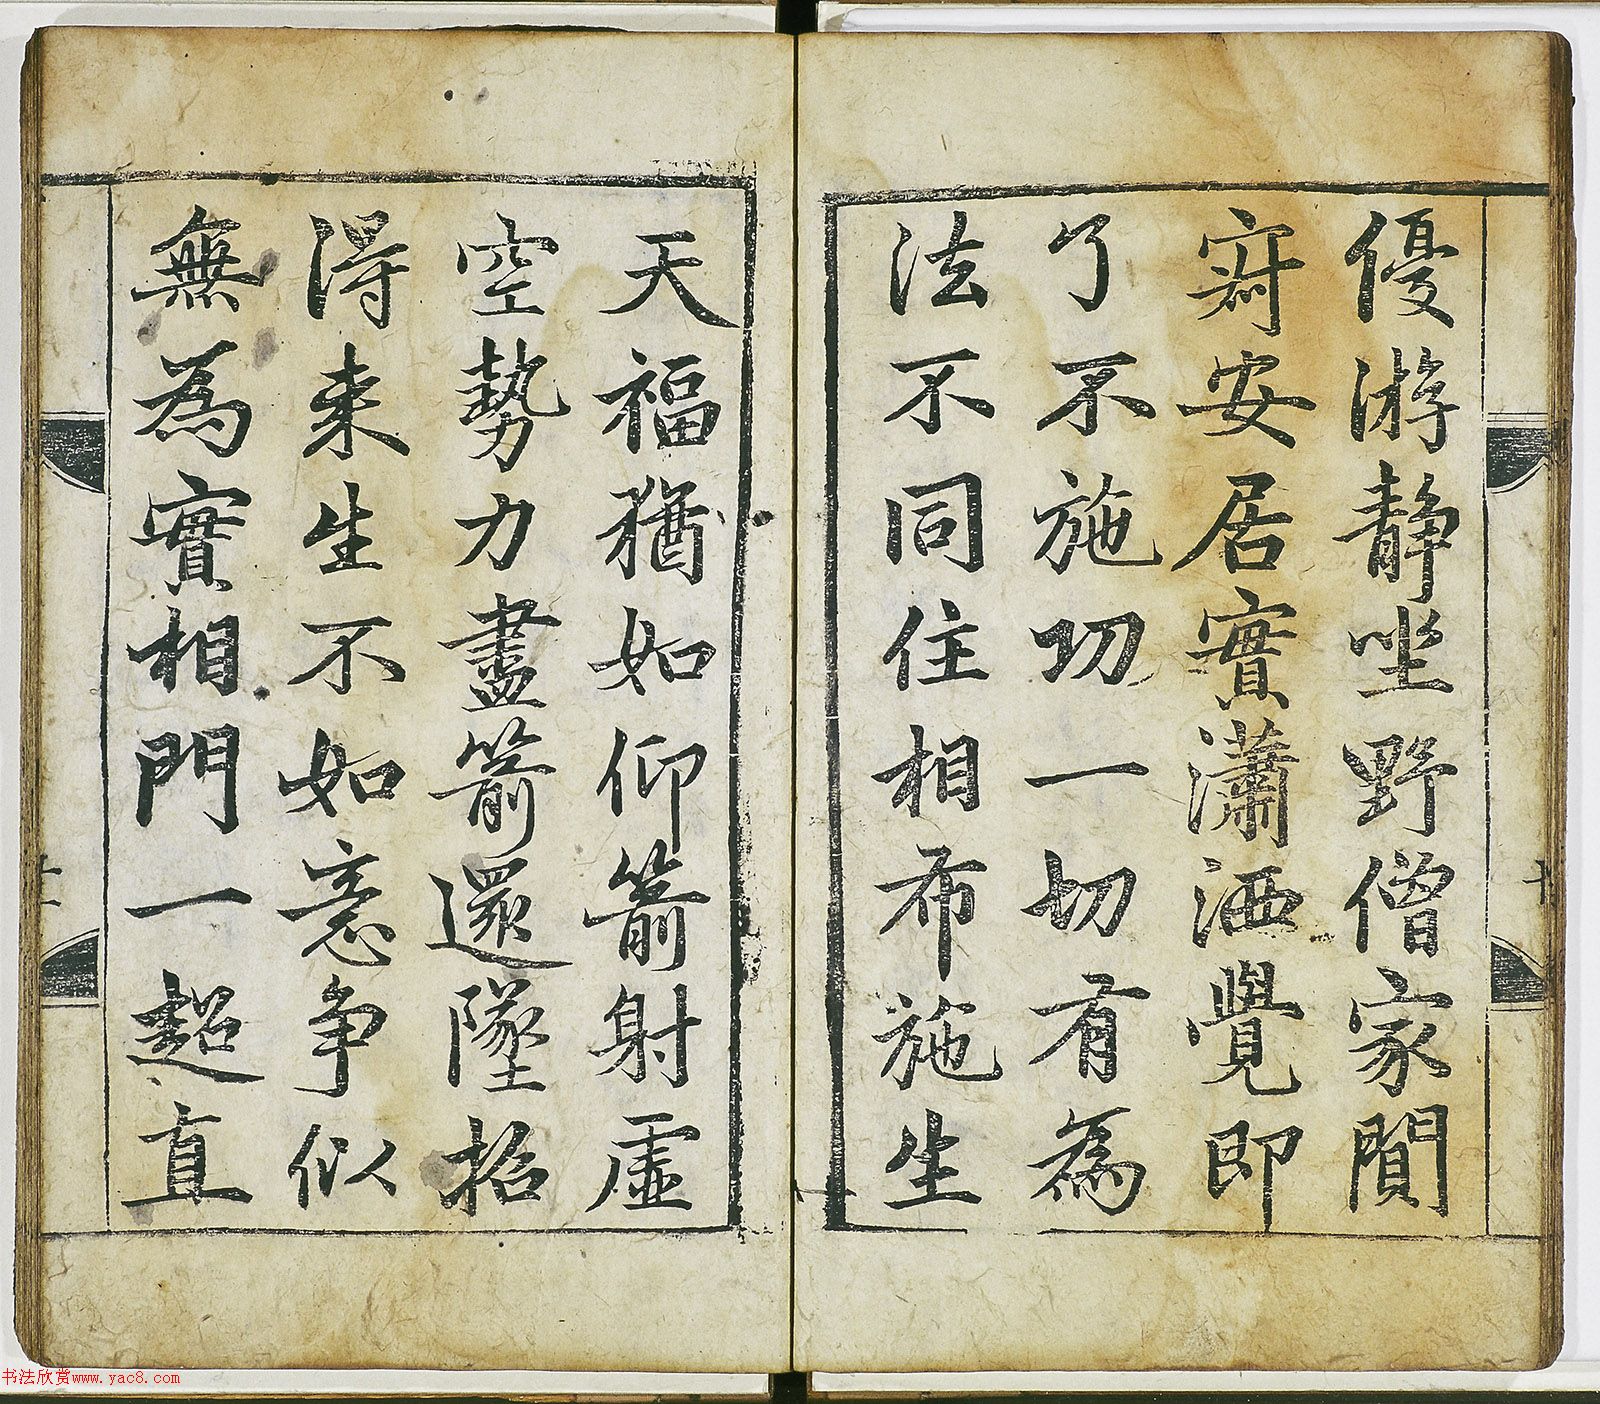 優游静坐野僧家閴
𡧯安居實瀟洒覺即
了不施功一切有為
法不同住相布施生
天福猶如仰箭射虛
空勢力盡箭還墜招
淂来生不如意争似
無為實相門一超直
书法欣赏www.yac8.com